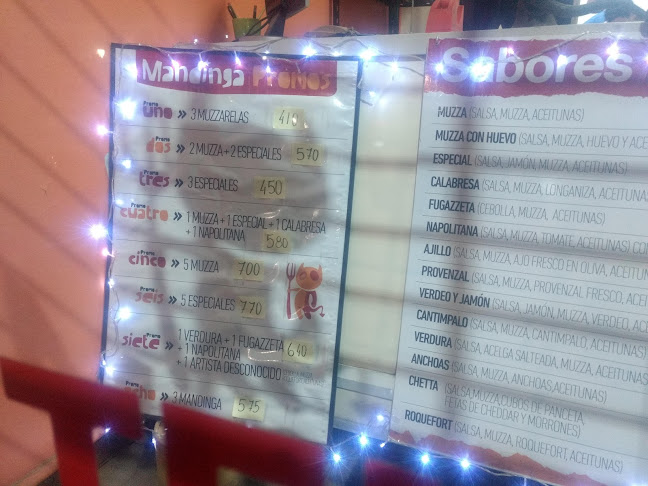 Mandinga PROMOS
Promo uno » 3 MUZZARELAS 410
Promo dos » 2 MUZZA + 2 ESPECIALES 570
Promo tres » 3 ESPECIALES 450
Promo cuatro » 1 MUZZA + 1 ESPECIAL + 1 CALABRESA
+ 1 NAPOLITANA 580
Promo cinco » 5 MUZZA 700
Promo seis » 5 ESPECIALES 770
Promo siete » 1 VERDURA + 1 FUGAZZETA
+ 1 NAPOLITANA 640
+ 1 ARTISTA DESCONOCIDO
Promo ocho » 3 MANDINGA 575
Sabores
MUZZA (SALSA, MUZZA, ACEITUNAS)
MUZZA CON HUEVO (SALSA, MUZZA, HUEVO Y ACE
ESPECIAL (SALSA, JAMÓN, MUZZA, ACEITUNAS)
CALABRESA (SALSA, MUZZA, LONGANIZA, ACEITUNAS
FUGAZZETA (CEBOLLA, MUZZA, ACEITUNAS)
NAPOLITANA (SALSA, MUZZA, TOMATE, ACEITUNAS) CO
AJILLO (SALSA, MUZZA, AJO FRESCO EN OLIVA, ACEITUNA
PROVENZAL (SALSA, MUZZA, PROVENZAL FRESCO, ACE
VERDEO Y JAMÓN (SALSA, JAMÓN, MUZZA, VERDEO, AC
CANTIMPALO (SALSA, MUZZA, CANTIMPALO, ACEITUNAS)
VERDURA (SALSA, ACELGA SALTEADA, MUZZA, ACEITUNAS)
ANCHOAS (SALSA, MUZZA, ANCHOAS, ACEITUNAS)
CHETTA (SALSA MUZZA, CUBOS DE PANCETA,
FETAS DE CHEDDAR Y MORRONES)
ROQUEFORT (SALSA, MUZZA, ROQUEFORT, ACEITUNAS)